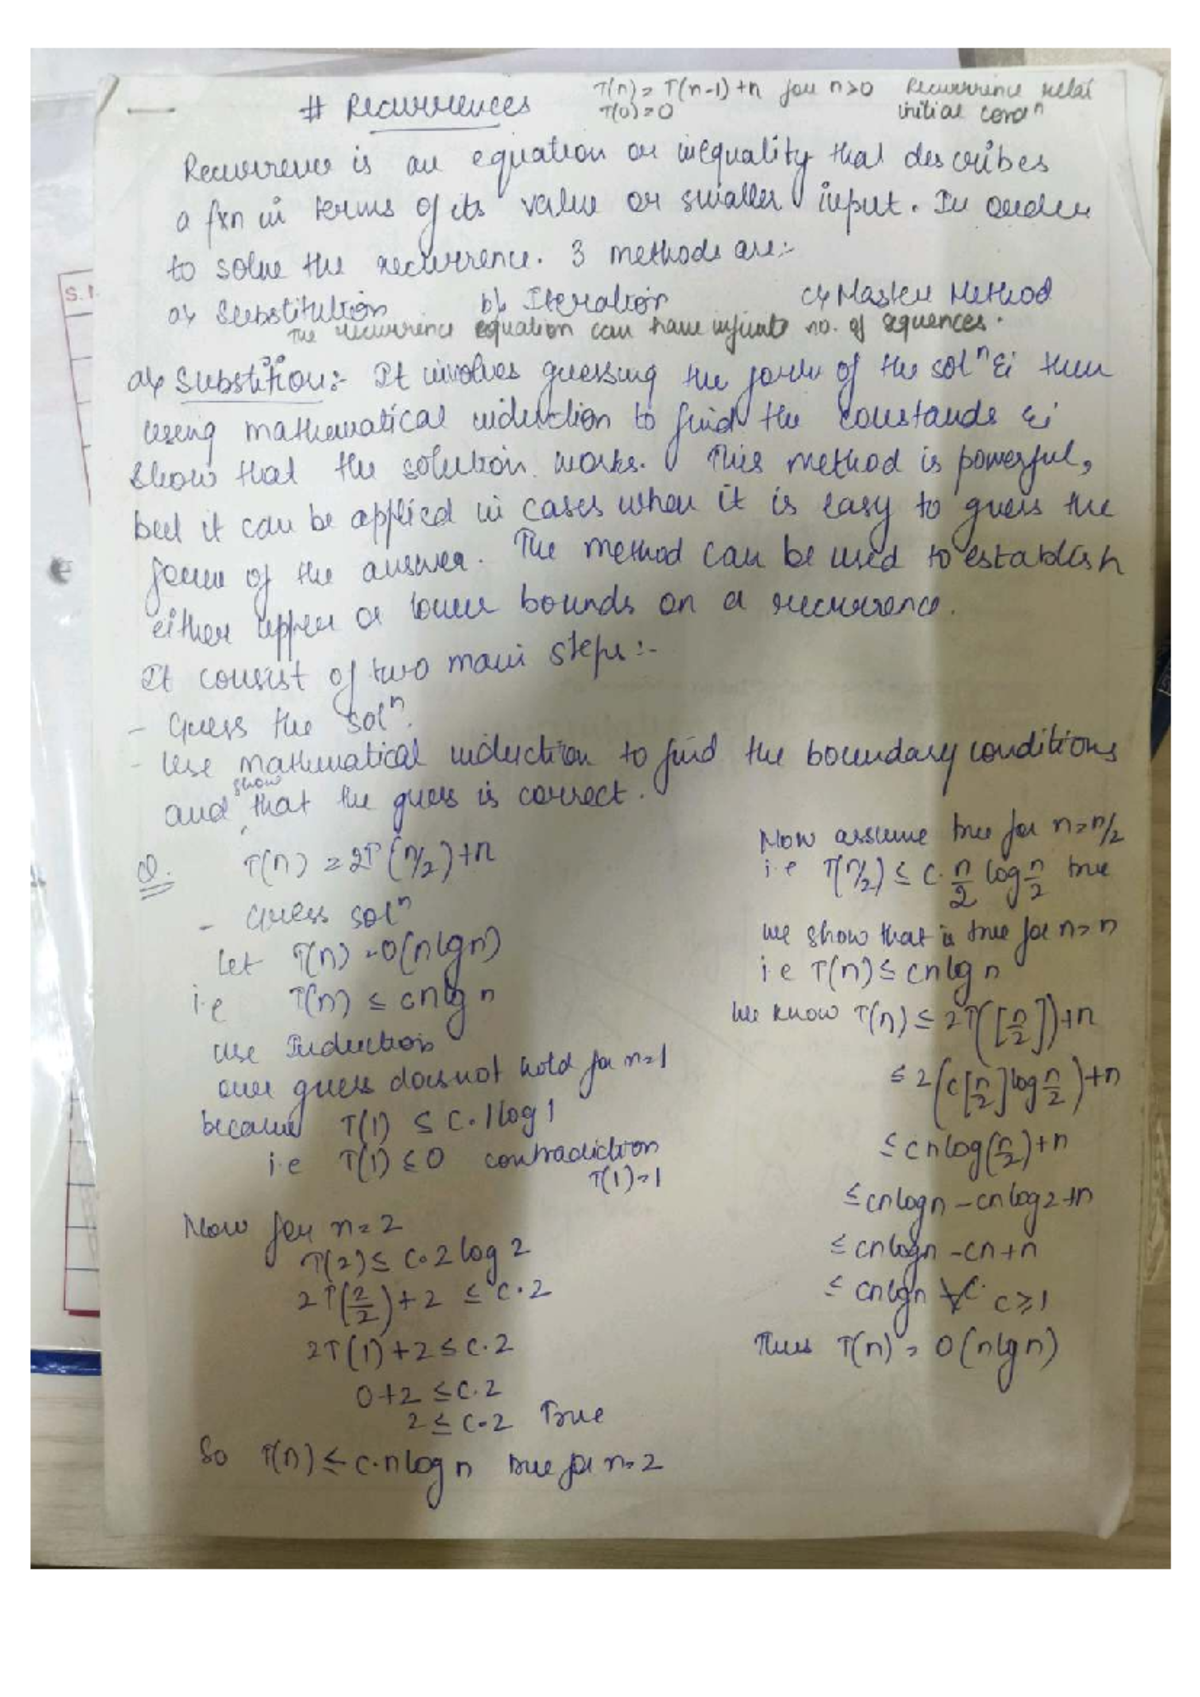 # Recurrences
T(n) = T(n-1)+n for n>0 Recurrence Relat
T(0)=0 initial condⁿ
Recurrence is an equation or inequality that describes
a fxn in terms of its value or smaller input. In order
to solve the recurrence. 3 methods are:-
a) Substitution b) Iteration c) Master Method
The recurrence equation can have infinite no. of sequences.
a) Substition:- It involves guessing the form of the solⁿ & then
using mathematical induction to find the constands &
show that the solution works. This method is powerful,
but it can be applied in cases when it is easy to guess the
form of the answer. The method can be used to establish
either upper or lower bounds on a recurrence.
It consist of two main steps:-
- Guess the solⁿ.
- Use mathematical induction to find the boundary conditions
show
and that the guess is correct.
Q. T(n) = 2T(n/2)+n
- Guess solⁿ
Let T(n) = O(nlgn)
i.e T(n) ≤ cnlgn
use Induction
our guess does not hold for n=1
because T(1) ≤ c.1log1
i.e T(1) ≤ 0 contradiction
T(1)=1
Now for n=2
T(2) ≤ c.2log2
2T(2/2)+2 ≤ c.2
2T(1)+2 ≤ c.2
0+2 ≤ c.2
2 ≤ c.2 True
So T(n) ≤ c.nlogn true for n=2
Now assume true for n=n/2
i.e T(n/2) ≤ c.n/2 log n/2 true
we show that is true for n=n
i.e T(n) ≤ cnlgn
We know T(n) ≤ 2T([n/2])+n
≤ 2(c[n/2]log n/2)+n
≤ cnlog(n/2)+n
≤ cnlogn - cnlog2+n
≤ cnlogn - cn+n
≤ cnlgn ∀c c≥1
Thus T(n) = O(nlgn)